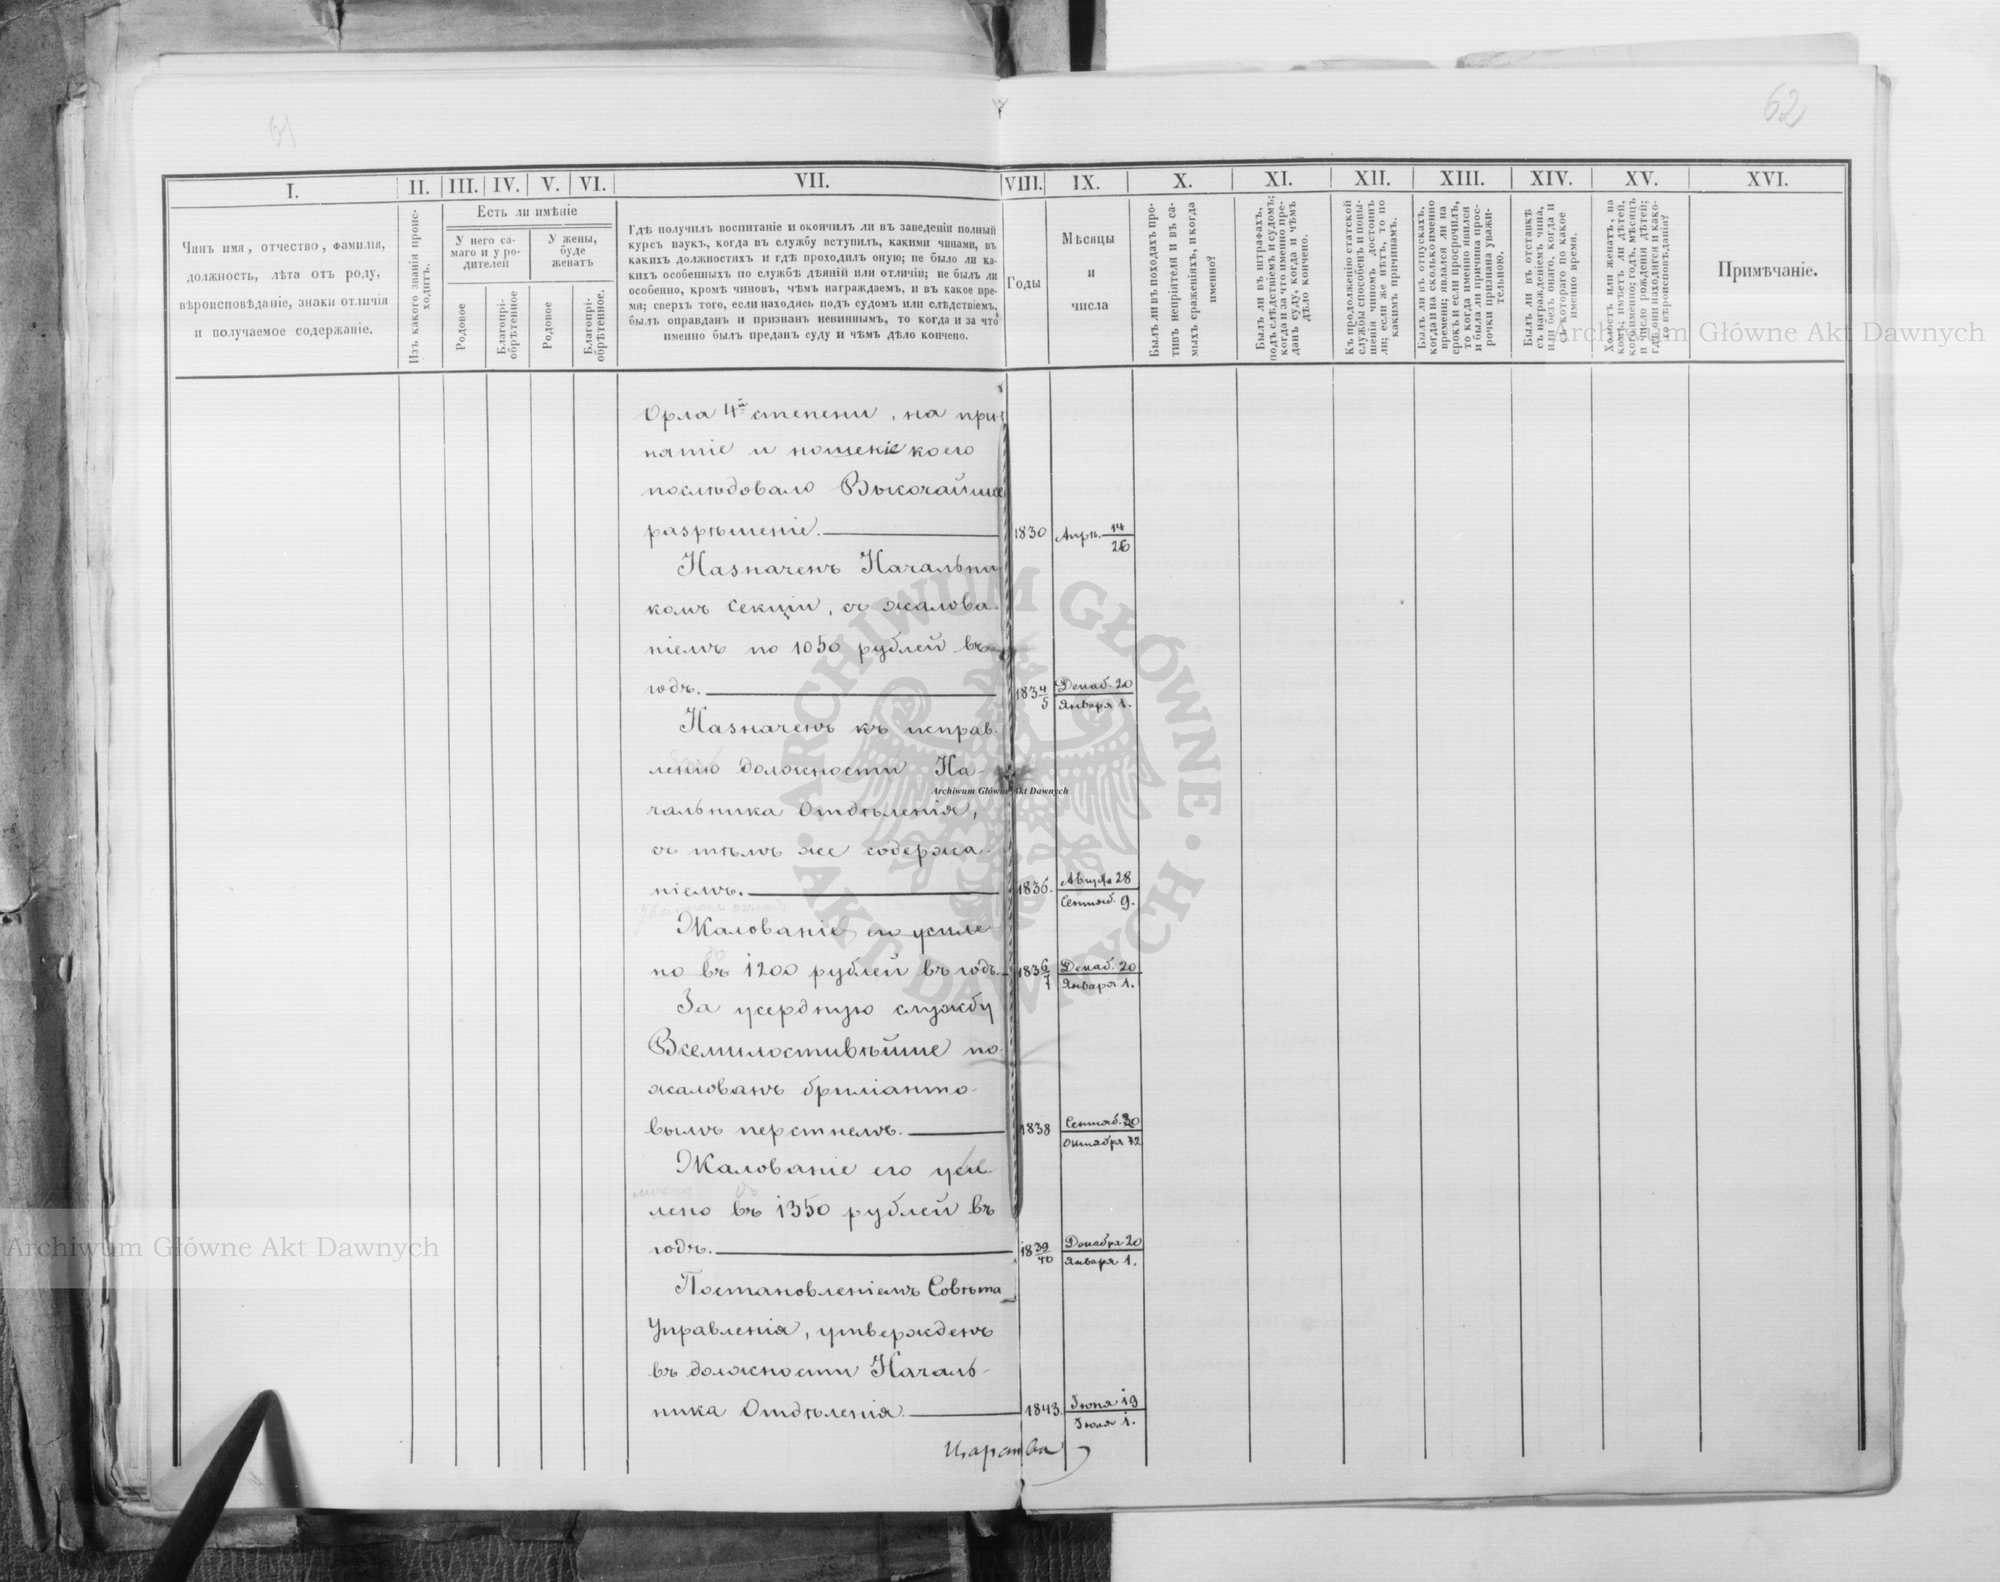 61
62
I.
II.
III.
IV.
V.
VI.
VII.
VIII.
IX.
X.
XI.
XII.
XIII.
XIV.
XV.
XVI.
Чинъ имя, отчество, фамилія,
должность, лѣта отъ роду,
вѣроисповѣданіе, знаки отличія
и получаемое содержаніе.
Изъ какого званія проис-
ходитъ.
Есть ли имѣніе
У него са-
маго и у ро-
дителей
У жены,
буде
женатъ
Родовое
Благопрі-
обрѣтенное
Родовое
Благопрі-
обрѣтенное.
Гдѣ получилъ воспитаніе и окончилъ ли въ заведеніи полный
курсъ наукъ, когда въ службу вступилъ, какими чинами, въ
какихъ должностяхъ и гдѣ проходилъ оную; не было ли ка-
кихъ особенныхъ по службѣ дѣяній или отличій; не былъ ли
особенно, кромѣ чиновъ, чѣмъ награждаемъ, и въ какое вре-
мя; сверхъ того, если находясь подъ судомъ или слѣдствіемъ,
былъ оправданъ и признанъ невиннымъ, то когда и за что
именно былъ преданъ суду и чѣмъ дѣло кончено.
Годы
Мѣсяцы
и
числа
Былъ ли въ походахъ про-
тивъ непріятеля и въ са-
мыхъ сраженіяхъ, и когда
именно?
Былъ ли въ штрафахъ,
подъ слѣдствіемъ и судомъ;
когда и за что именно пре-
данъ суду, когда и чѣмъ
дѣло кончено.
Къ продолженію статской
службы способенъ и повы-
шенія чиномъ достоинъ
ли; если же нѣтъ, то по
какимъ причинамъ.
Былъ ли въ отпускахъ,
когда и на сколько именно
времени; являлся ли на
срокъ и если просрочилъ,
то когда именно явился
и была ли причина прос-
рочки признана уважи-
тельною.
Былъ ли въ отставкѣ
съ награжденіемъ чина,
или безъ онаго, когда и
съ котораго по какое
именно время.
Холостъ или женатъ, на
комъ; имѣетъ ли дѣтей,
кого именно; годъ, мѣсяцъ
и число рожденія дѣтей;
гдѣ они находятся и како-
го вѣроисповѣданія?
Примѣчаніе.
Орла 4й степени, на при-
нятіе и ношеніе коего
послѣдовало Высочайшее
разрѣшеніе. 1830 Апрѣ. 14/26
Назначенъ Начальни
комъ секціи, съ жалова-
ніемъ по 1050 рублей въ
годъ. 1834/5 Декаб. 20/Января 1.
Назначенъ къ исправ
ленію должности На-
чальника Отдѣленія,
съ тѣмъ же содержа
ніемъ. 1836. Августа 28/Сентяб. 9.
Жалованіе его усиле
но въ 1200 рублей въ годъ. 1836/7 Декаб. 20/Января 1.
За усердную службу
Всемилостивѣйше по
жалованъ бриліанто-
вымъ перстнемъ. 1838 Сентяб. 30/Октября 12
Жалованіе его уси
лено въ 1350 рублей въ
годъ. 1839/40 Декабря 20/Января 1.
Постановленіемъ Совѣта
Управленія, утвержденъ
въ должности Началь-
ника Отдѣленія. 1843. Іюня 19/Іюля 1.
Царства
Archiwum Główne Akt Dawnych
Archiwum Główne Akt Dawnych
Archiwum Główne Akt Dawnych
ARCHIWUM GŁÓWNE · AKT DAWNYCH ·